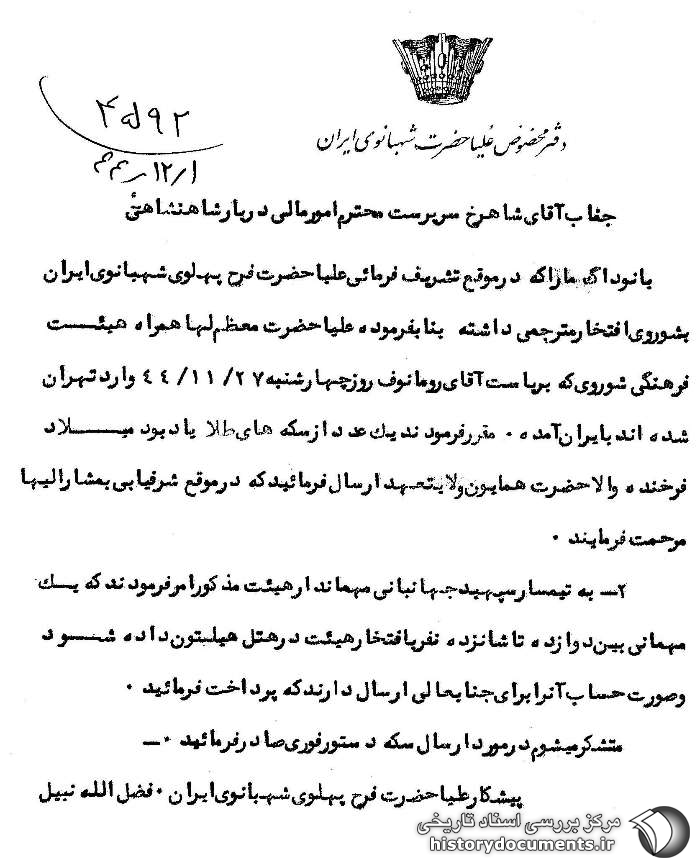 دفتر مخصوص علیاحضرت شهبانوی ایران
۴۵۹۲
جناب آقای شاهرخ سرپرست محترم امورمالی دربارشاهنشاهی
بانودا مارا که درموقع تشریف فرمائی علیاحضرت فرح پهلوی شهبانوی ایران
بشوروی افتخارمترجمی داشته بنابفرموده علیاحضرت معظم لها همراه هیئت
فرهنگی شوروی که بریاست آقای رومانوف روزچهارشنبه ۴۴/۱۱/۲۷ واردتهران
شده اندبایران آمده ۰ مقررفرمودندیک عددازسکه های طلا یادبود میلاد
فرخنده والاحضرت همایون ولایتعهد ارسال فرمائیدکه درموقع شرفیابی بمشارالیها
مرحمت فرمایند ۰
۲ـ به تیمسارسپهبدجهانبانی مهماندارهیئت مذکورامرفرمودندکه یک
مهمانی بین دوازده تاشانزده نفربافتخارهیئت درهتل هیلتون داده شود
وصورت حساب آنرابرای جنابعالی ارسال دارندکه پرداخت فرمائید ۰
متشکرمیشوم درموردارسال سکه دستورفوری صادرفرمائید ۰ـ
پیشکارعلیاحضرت فرح پهلوی شهبانوی ایران ۰ فضل الله نبیل
مرکز بررسی اسناد تاریخی
historydocuments.ir